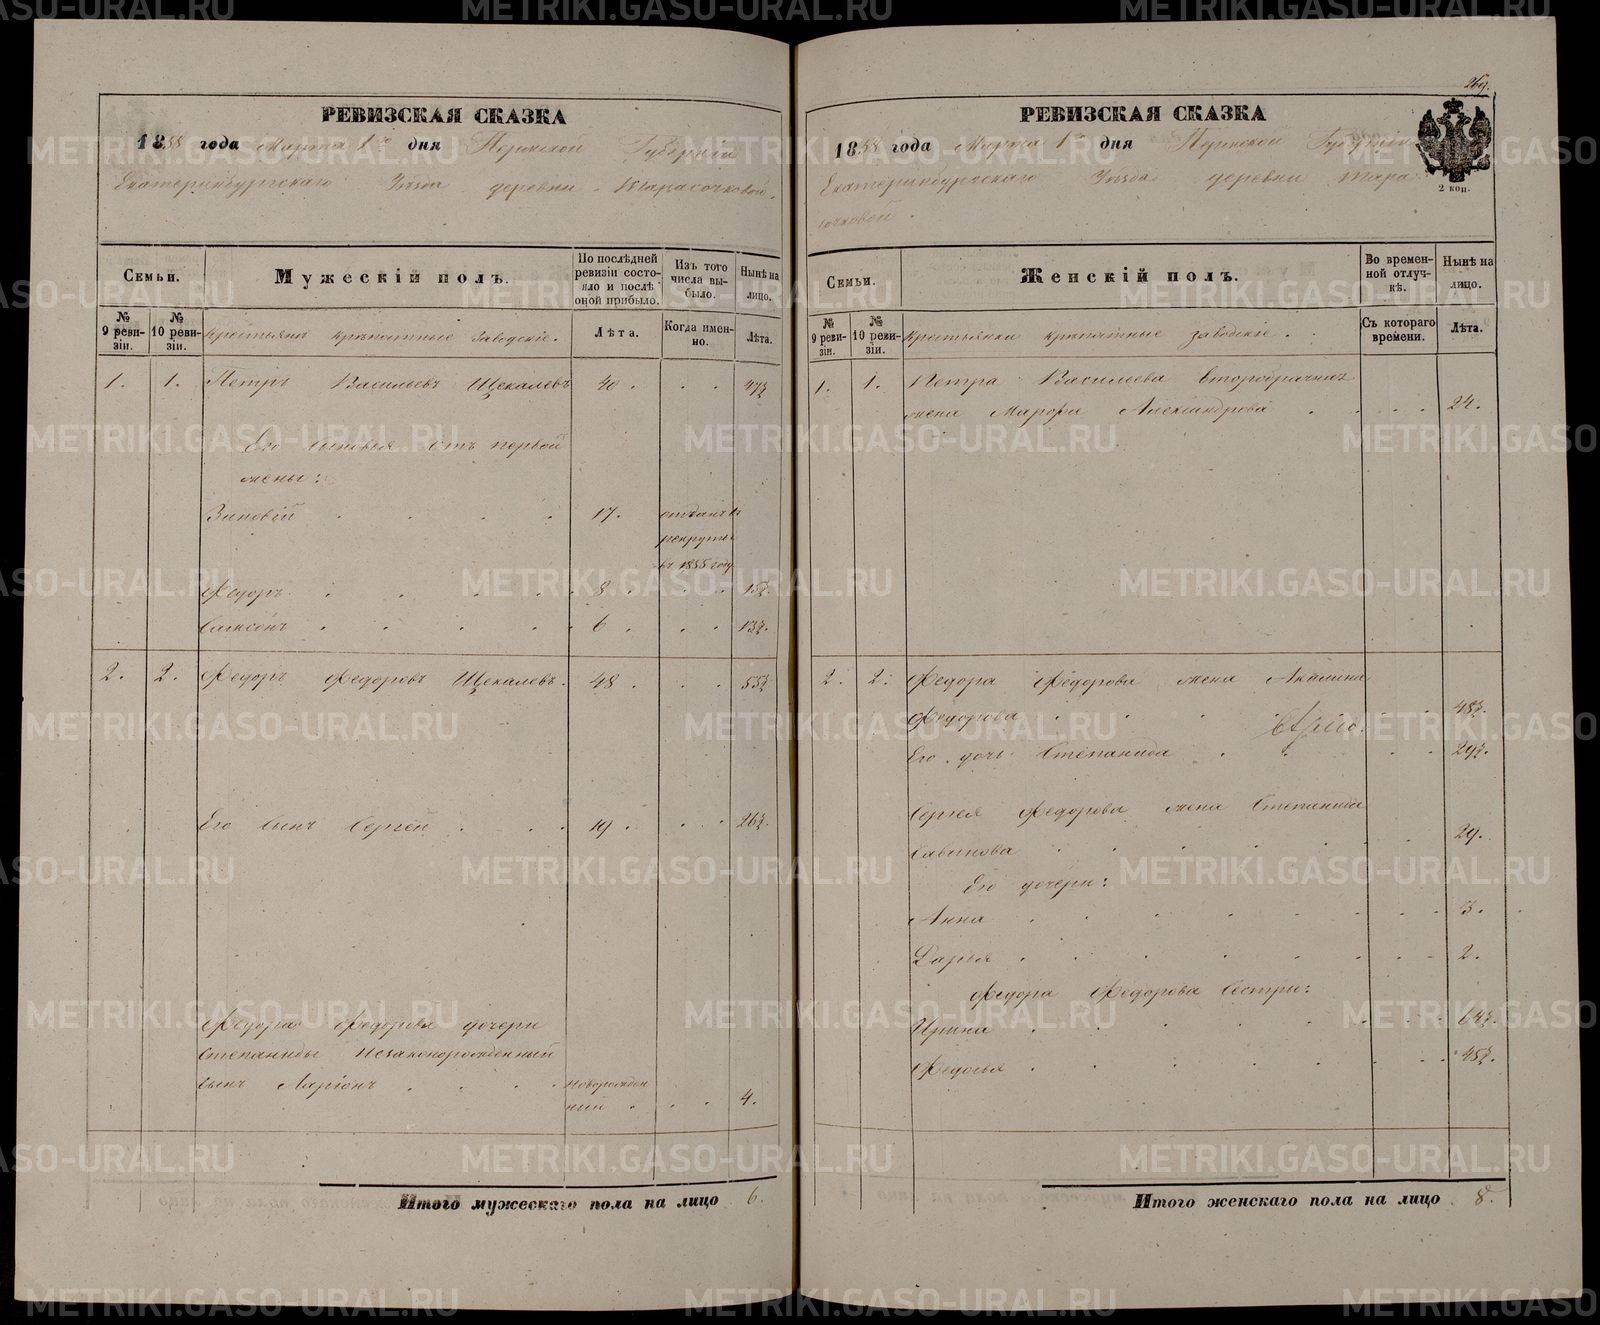 РЕВИЗСКАЯ СКАЗКА
1858 года Марта 1го дня Пермской Губернии
Екатеринбургскаго Уѣзда деревни Тарасочковой.
Семьи.
Мужескій полъ.
По послѣдней ревизіи состояло и послѣ оной прибыло.
Изъ того числа выбыло.
Нынѣ на лицо.
№ 9 ревизіи.
№ 10 ревизіи.
Крестьяне крѣпостные Заводскіе.
Лѣта.
Когда именно.
Лѣта.
1. 1. Петръ Васильевъ Щекалевъ 40 . . . 47½
Его сыновья отъ первой
жены:
Зиновій . . . . 17. отданъ въ
рекруты
въ 1855 году
Федоръ . . . . 8 . . . 15½.
Самсонъ . . . . 6 . . . 13½.
2. 2. Федоръ Федоровъ Щекалевъ. 48 . . . 55½
Его сынъ Сергѣй . . . 19 . . . 26½.
Федора Федорова дочери
Степаниды незаконорожденный
сынъ Ларіонъ . . . . новорожден
ный . . . 4.
Итого мужескаго пола на лицо 6.
269.
РЕВИЗСКАЯ СКАЗКА
1858 года Марта 1го дня Пермской Губерніи
Екатеринбургскаго Уѣзда деревни Тара
сочковой.
2 коп.
Семьи.
Женскій полъ.
Во временной отлучкѣ.
Нынѣ на лицо.
№ 9 ревизіи.
№ 10 ревизіи.
Крестьянки крѣпостные заводскіе . .
Съ котораго времени.
Лѣта.
1. 1. Петра Васильева второбрачная
жена Марфа Александрова . . . . . 24.
2. 2. Федора Федорова жена Акилина
Федорова . . . . . . 48½.
Его дочь Степанида . . . . 29½.
Сергея Федорова жена Степанида
Савинова . . . . . . 29.
Его дочери:
Анна . . . . . . 3.
Дарья . . . . . . 2.
Федора Федорова Сестры:
Ирина . . . . . . 64½.
Федосья . . . . . . 45½.
Итого женскаго пола на лицо 8.
METRIKI.GASO-URAL.RU